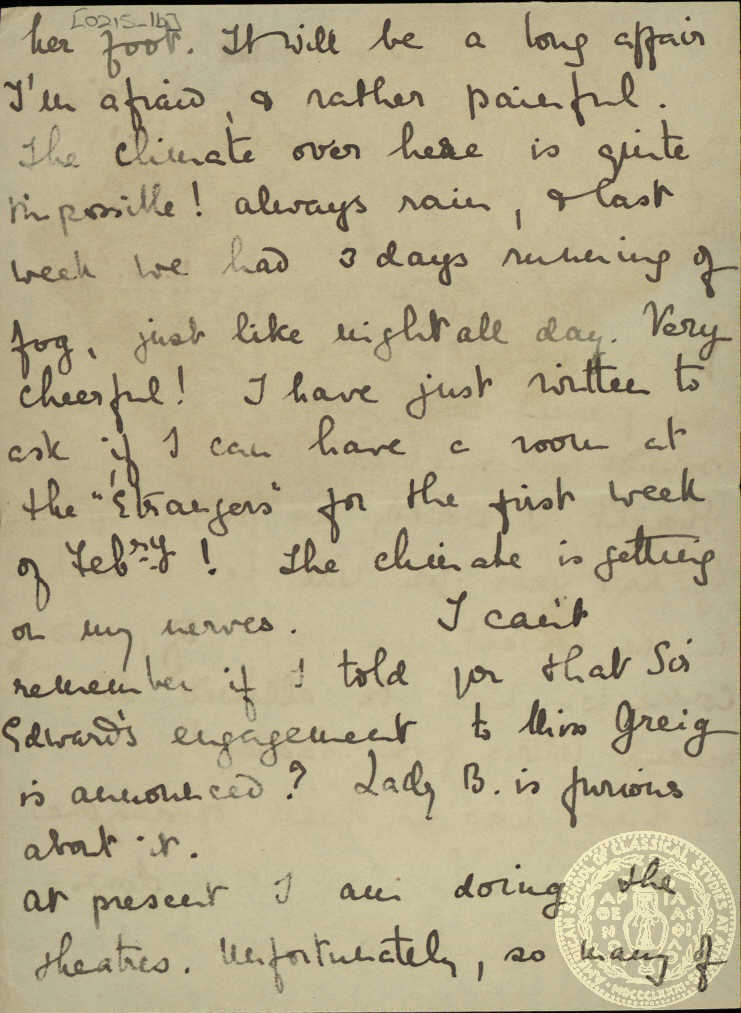 [0215_1b]
her foot. It will be a long affair
I'm afraid, & rather painful.
The climate over here is quite
impossible! always rain, & last
week we had 3 days running of
fog, just like night all day. Very
cheerful! I have just written to
ask if I can have a room at
the "Étrangers" for the first week
of Febry! The climate is getting
on my nerves. I can't
remember if I told you that Sir
Edward's engagement to Miss Greig
is announced? Lady B. is furious
about it.
At present I am doing the
theatres. Unfortunately, so many of
AMERICAN SCHOOL OF CLASSICAL STUDIES AT
MDCCCLXXXI